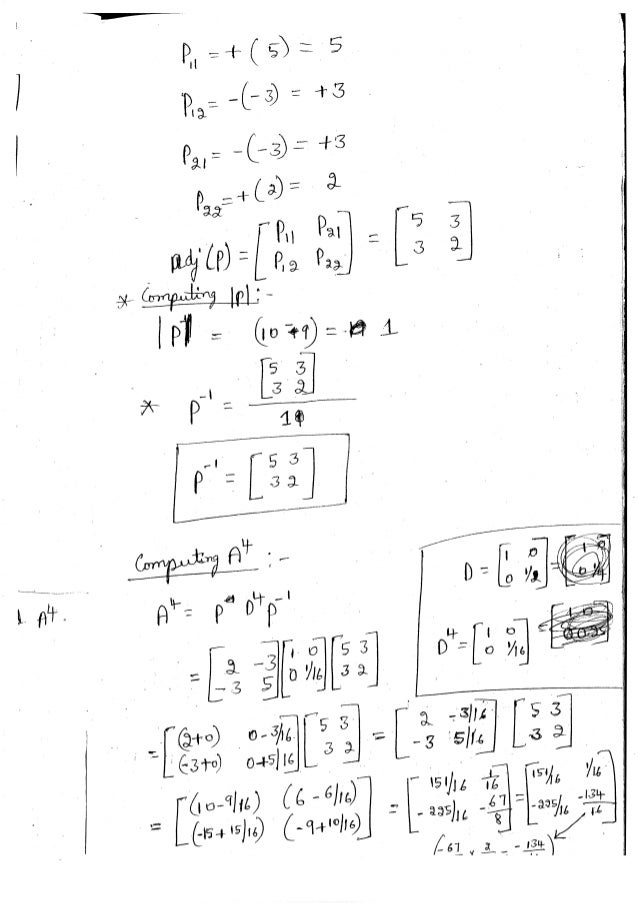 P₁₁ = +(5) = 5
P₁₂ = -(-3) = +3
P₂₁ = -(-3) = +3
P₂₂ = +(2) = 2
adj(P) = [P₁₁ P₂₁; P₁₂ P₂₂] = [5 3; 3 2]
* Computing |P| :-
|P| = (10-9) = 1
* P⁻¹ = [5 3; 3 2] / 1
P⁻¹ = [5 3; 3 2]
Computing A⁴ :-
D = [1 0; 0 1/2] =
D⁴ = [1 0; 0 1/16] =
A⁴.
A⁴ = P D⁴ P⁻¹
= [2 -3; -3 5] [1 0; 0 1/16] [5 3; 3 2]
= [(2+0) 0-3/16; (-3+0) 0+5/16] [5 3; 3 2] = [2 -3/16; -3 5/16] [5 3; 3 2]
= [(10-9/16) (6-6/16); (-15+15/16) (-9+10/16)] = [151/16 1/16; -225/16 -67/8] = [151/16 1/16; -225/16 -134/16]
(-67 × 2 = -134)